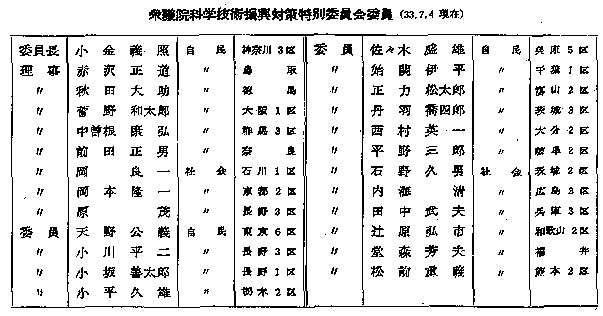 衆議院科学技術振興対策特別委員会委員 (33.7.4 現在)
委員長 小金義照 自民 神奈川3区
理事 赤沢正道 〃 鳥取
〃 秋田大助 〃 徳島
〃 菅野和太郎 〃 大阪1区
〃 中曽根康弘 〃 群馬3区
〃 前田正男 〃 奈良
〃 岡良一 社会 石川1区
〃 岡本隆一 〃 京都2区
〃 原茂 〃 長野3区
委員 天野公義 自民 東京6区
〃 小川平二 〃 長野3区
〃 小坂善太郎 〃 長野1区
〃 小平久雄 〃 栃木2区
委員 佐々木盛雄 自民 兵庫5区
〃 始関伊平 〃 千葉1区
〃 正力松太郎 〃 富山2区
〃 丹羽喬四郎 〃 茨城3区
〃 西村英一 〃 大分2区
〃 平野三郎 〃 岐阜2区
〃 石野久男 社会 茨城2区
〃 内海清 〃 広島3区
〃 田中武夫 〃 兵庫3区
〃 辻原弘市 〃 和歌山2区
〃 堂森芳夫 〃 福井
〃 松前重義 〃 熊本2区